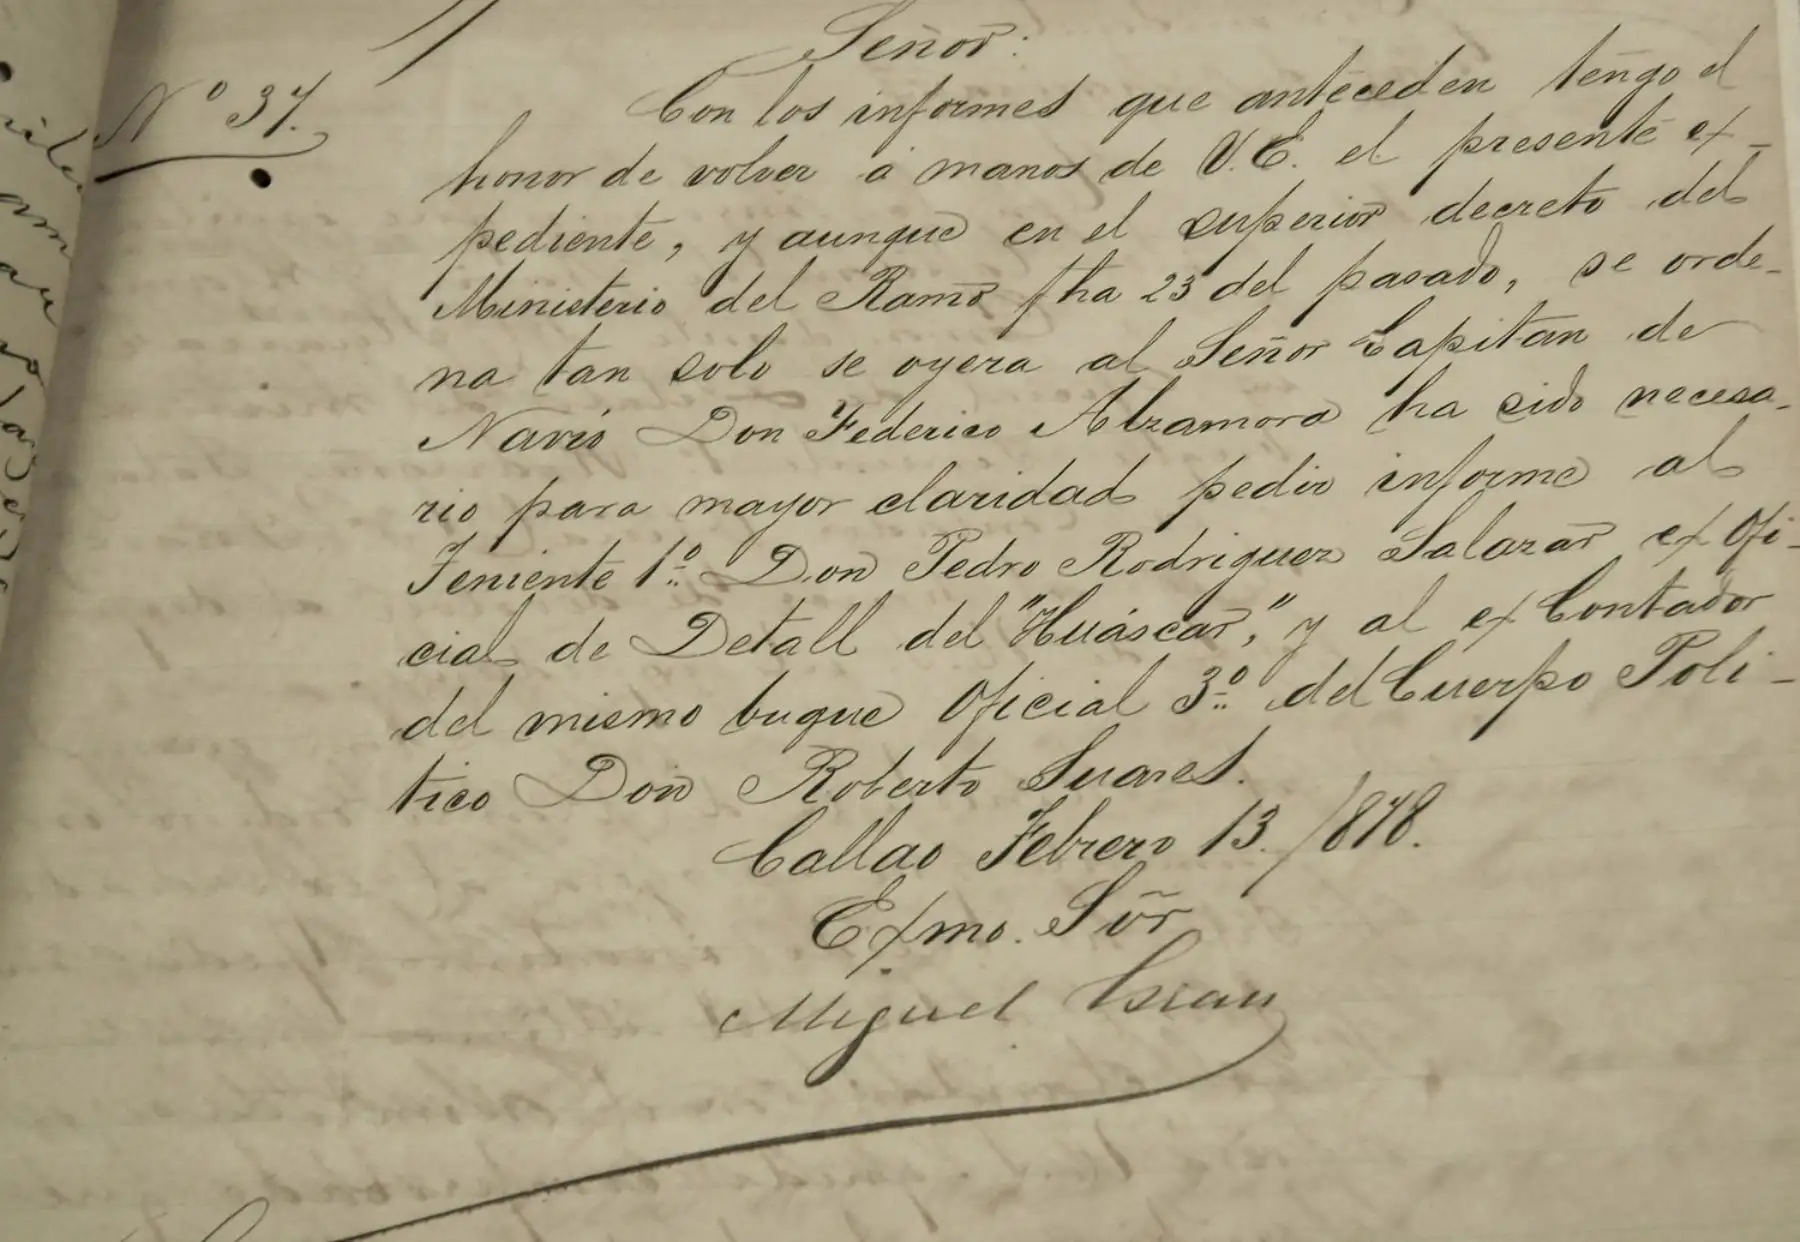 Señor:
Nº 37.
Con los informes que anteceden tengo el
honor de volver á manos de V.E. el presente ex-
pediente, y aunque en el superior decreto del
Ministerio del Ramo fha 23 del pasado, se orde-
na tan solo se oyera al Señor Capitan de
Navío Don Federico Alzamora ha sido necesa-
rio para mayor claridad pedir informe al
Teniente 1º Don Pedro Rodriguez Salazar ex Ofi-
cial de Detall del "Huáscar," y al ex Contador
del mismo buque Oficial 3º del Cuerpo Polí-
tico Don Roberto Suares.
Callao Febrero 13. /878.
Exmo. Sõr
Miguel Grau